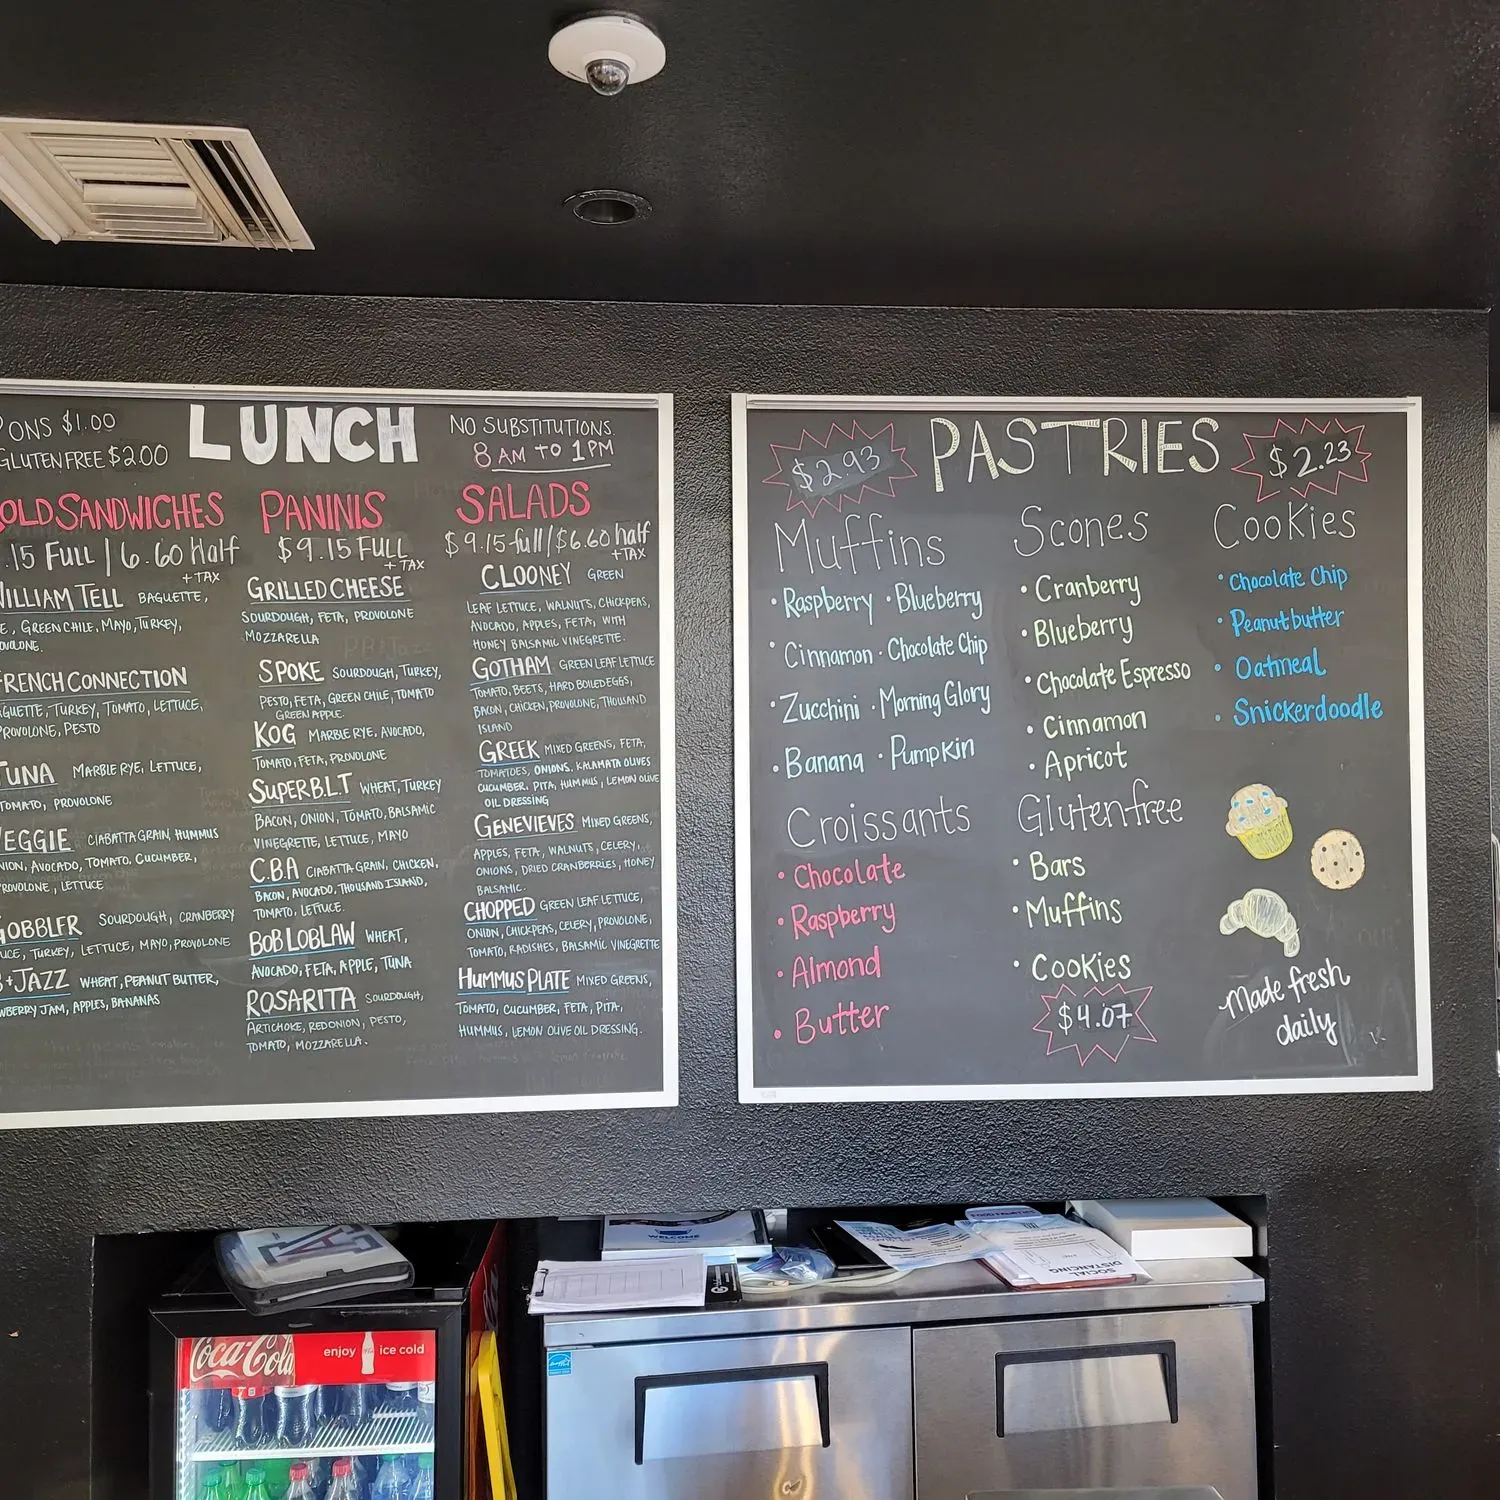 PONS $1.00
GLUTEN FREE $2.00
LUNCH
NO SUBSTITUTIONS
8 AM TO 1 PM
OLD SANDWICHES
.15 FULL | 6.60 Half
+ TAX
WILLIAM TELL BAGUETTE,
E, GREEN CHILE, MAYO, TURKEY,
FRENCH CONNECTION
GUETTE, TURKEY, TOMATO, LETTUCE,
PROVOLONE, PESTO
TUNA MARBLE RYE, LETTUCE,
TOMATO, PROVOLONE
VEGGIE CIABATTA GRAIN, HUMMUS
NION, AVOCADO, TOMATO, CUCUMBER,
PROVOLONE, LETTUCE
GOBBLER SOURDOUGH, CRANBERRY
UCE, TURKEY, LETTUCE, MAYO, PROVOLONE
B+JAZZ WHEAT, PEANUT BUTTER,
WBERRY JAM, APPLES, BANANAS
PANINIS
$9.15 FULL
+ TAX
GRILLED CHEESE
SOURDOUGH, FETA, PROVOLONE
MOZZARELLA
SPOKE SOURDOUGH, TURKEY,
PESTO, FETA, GREEN CHILE, TOMATO
GREEN APPLE.
KOG MARBLE RYE, AVOCADO,
TOMATO, FETA, PROVOLONE
SUPER B.L.T WHEAT, TURKEY
BACON, ONION, TOMATO, BALSAMIC
VINEGRETTE, LETTUCE, MAYO
C.B.A CIABATTA GRAIN, CHICKEN,
BACON, AVOCADO, THOUSAND ISLAND,
TOMATO, LETTUCE.
BOB LOBLAW WHEAT,
AVOCADO, FETA, APPLE, TUNA
ROSARITA SOURDOUGH,
ARTICHOKE, RED ONION, PESTO,
TOMATO, MOZZARELLA.
SALADS
$9.15 full/$6.60 half
+TAX
CLOONEY GREEN
LEAF LETTUCE, WALNUTS, CHICKPEAS,
AVOCADO, APPLES, FETA, WITH
HONEY BALSAMIC VINEGRETTE.
GOTHAM GREEN LEAF LETTUCE
TOMATO, BEETS, HARD BOILED EGGS,
BACON, CHICKEN, PROVOLONE, THOUSAND
ISLAND
GREEK MIXED GREENS, FETA,
TOMATOES, ONIONS, KALAMATA OLIVES
CUCUMBER, PITA, HUMMUS, LEMON OLIVE
OIL DRESSING
GENEVIEVES MIXED GREENS,
APPLES, FETA, WALNUTS, CELERY,
ONIONS, DRIED CRANBERRIES, HONEY
BALSAMIC.
CHOPPED GREEN LEAF LETTUCE,
ONION, CHICKPEAS, CELERY, PROVOLONE,
TOMATO, RADISHES, BALSAMIC VINEGRETTE
HUMMUS PLATE MIXED GREENS,
TOMATO, CUCUMBER, FETA, PITA,
HUMMUS, LEMON OLIVE OIL DRESSING.
$2.93
PASTRIES
$2.23
Muffins
• Raspberry • Blueberry
• Cinnamon • Chocolate Chip
• Zucchini • Morning Glory
• Banana • Pumpkin
Croissants
• Chocolate
• Raspberry
• Almond
• Butter
Scones
• Cranberry
• Blueberry
• Chocolate Espresso
• Cinnamon
• Apricot
Glutenfree
• Bars
• Muffins
• Cookies
$4.07
Cookies
• Chocolate Chip
• Peanut butter
• Oatmeal
• Snickerdoodle
Made fresh
daily
WELCOME
SOCIAL
DISTANCING
Coca-Cola
enjoy ice cold